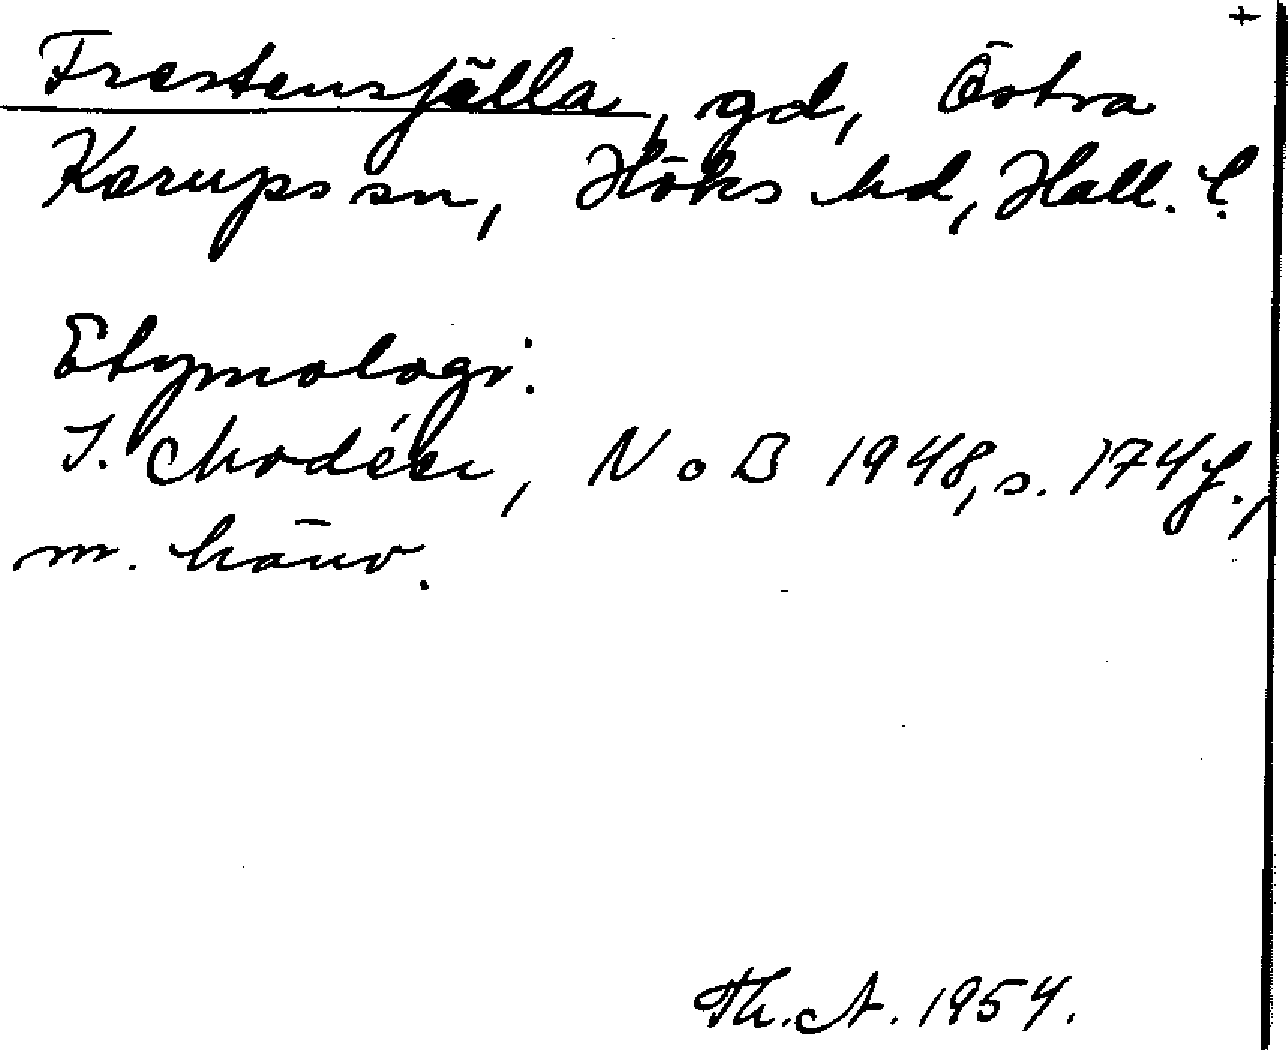 +
Frestensfälla, gd, Östra
Karups sn, Höks hd, Hall. l.
Etymologi:
I. Modéer, NoB 1948, s. 174 f.,
m. hänv.
Th. A. 1954.